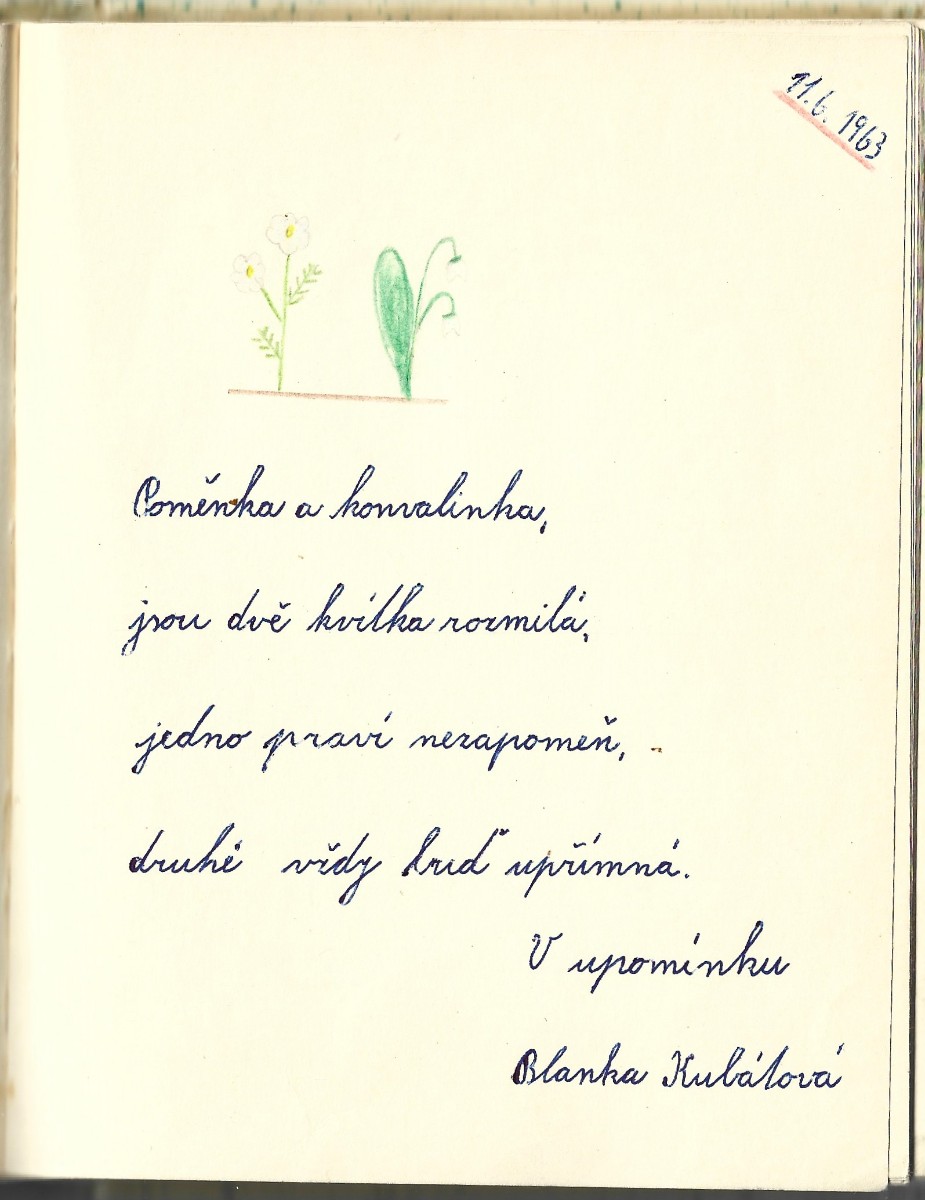 11.6. 1963
Poměnka a konvalinka,
jsou dvě kvítka rozmilá,
jedno praví nezapomeň,
druhé vždy buď upřímná.
V upomínku
Blanka Kubátová